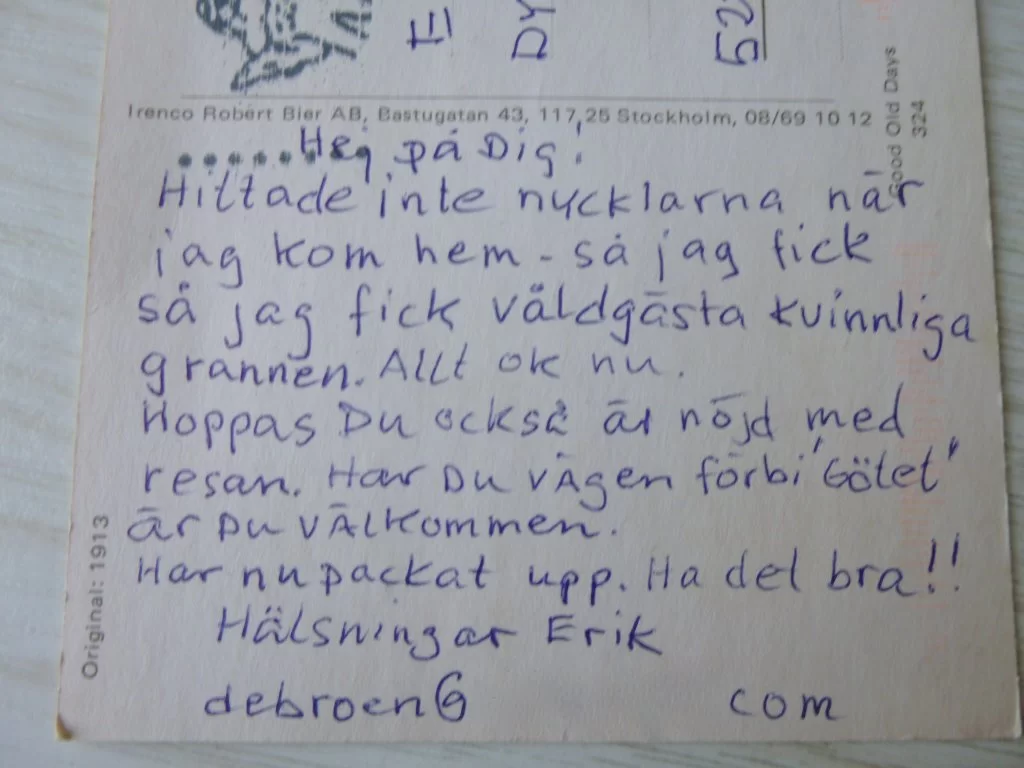 E
DY
52
Irenco Robert Bier AB, Bastugatan 43, 117 25 Stockholm, 08/69 10 12
Good Old Days
324
Original: 1913
Hej på Dig!
Hittade inte nycklarna när
jag kom hem - så jag fick
så jag fick väldgästa kvinnliga
grannen. Allt ok nu.
Hoppas Du också är nöjd med
resan. Har Du vägen förbi 'Götet'
är Du välkommen.
Har nu packat upp. Ha del bra!!
Hälsningar Erik
debroen@ com